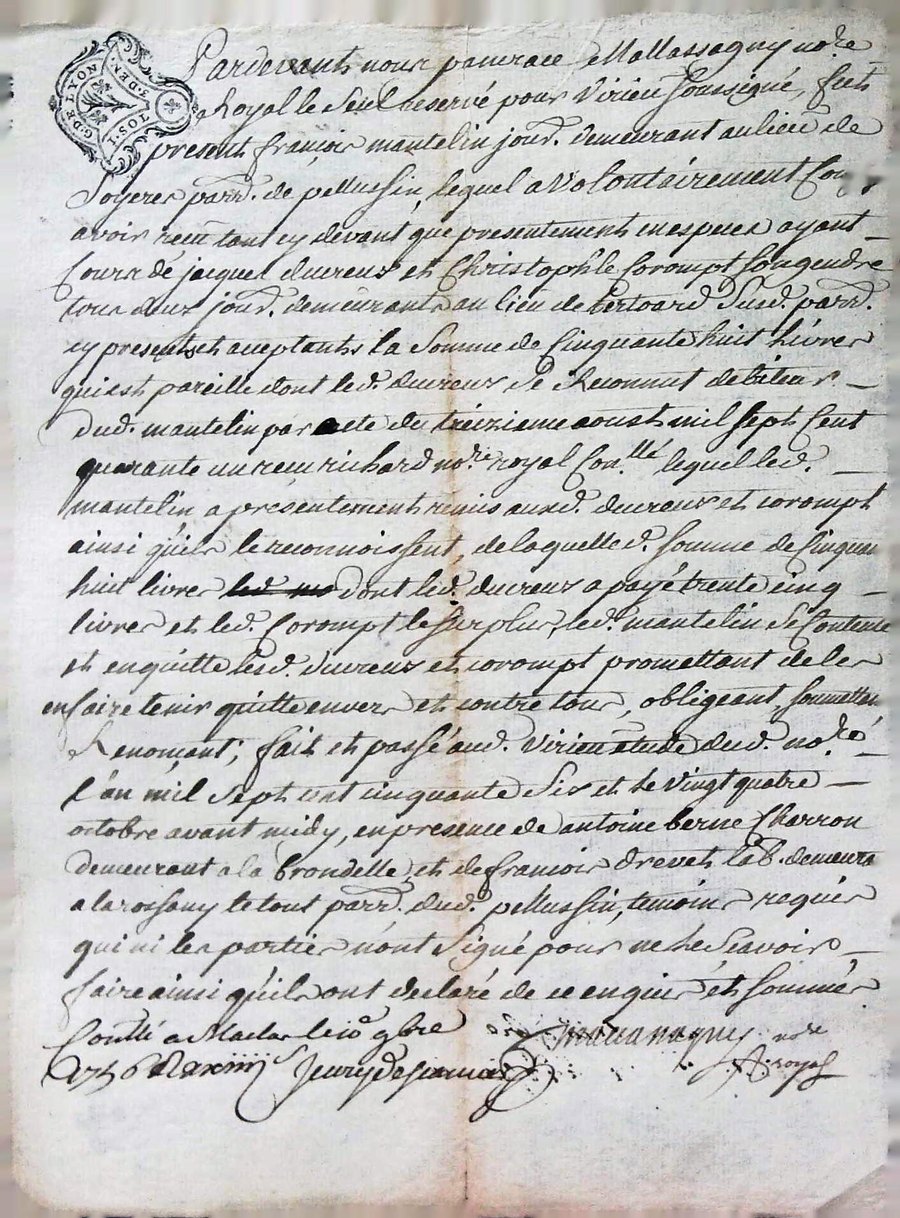 G. DE LYON
1. SOL
3. DEN.
Pardevant nous pancrace Mallassagny no.re
Royal le Seul reservé pour Virieu soussigné, fut
present françois mantelin jour.d demeurant au lieu de
Soyeres parr.e de pellussin, lequel a volontairement
avoir reçu tant cy devant que presentement en especes ayant
Cours de jacques ducreux et Christophle Corompt son gendre
tous deux jour.d demeurants au lieu de Sus.d parr.e
cy presents et aceptants la Somme de Cinquante huit livres
qui est pareille dont led. ducreux Se Reconnut debiteur
dud. mantelin par acte du treizieme aoust mil Sept Cent
quarante un reçu richard no.re royal lequel led.
mantelin a presentement remis aux d. ducreux et corompt
ainsi qu'ils le reconnoissent, de laquelle d. Somme de Cinquan
huit livres led. ma dont led. ducreux a payé trente cinq
livres et led. Corompt le surplus, led. mantelin Se Contente
et en quitte lesd. ducreux et corompt promettant de les
en faire tenir quitte envers et contre tous, obligeant, soumettan
Renonçant; fait et passé aud. Virieu étude dud. no.re
l'an mil Sept cent cinquante Six et le vingt quatre
octobre avant midy, en presence de antoine berne Charron
demeurant a la brondelle, et de francois drevet lab. demeura
a la rossany le tout parr.e dud. pellussin, temoins requis
qui ni les parties n'ont Signé pour ne le Scavoir
faire ainsi qu'ils ont declaré de ce enquis et Sommés
Conllé a Maclas le 10e 9bre
1756 R
Mallassagny no.re
royal